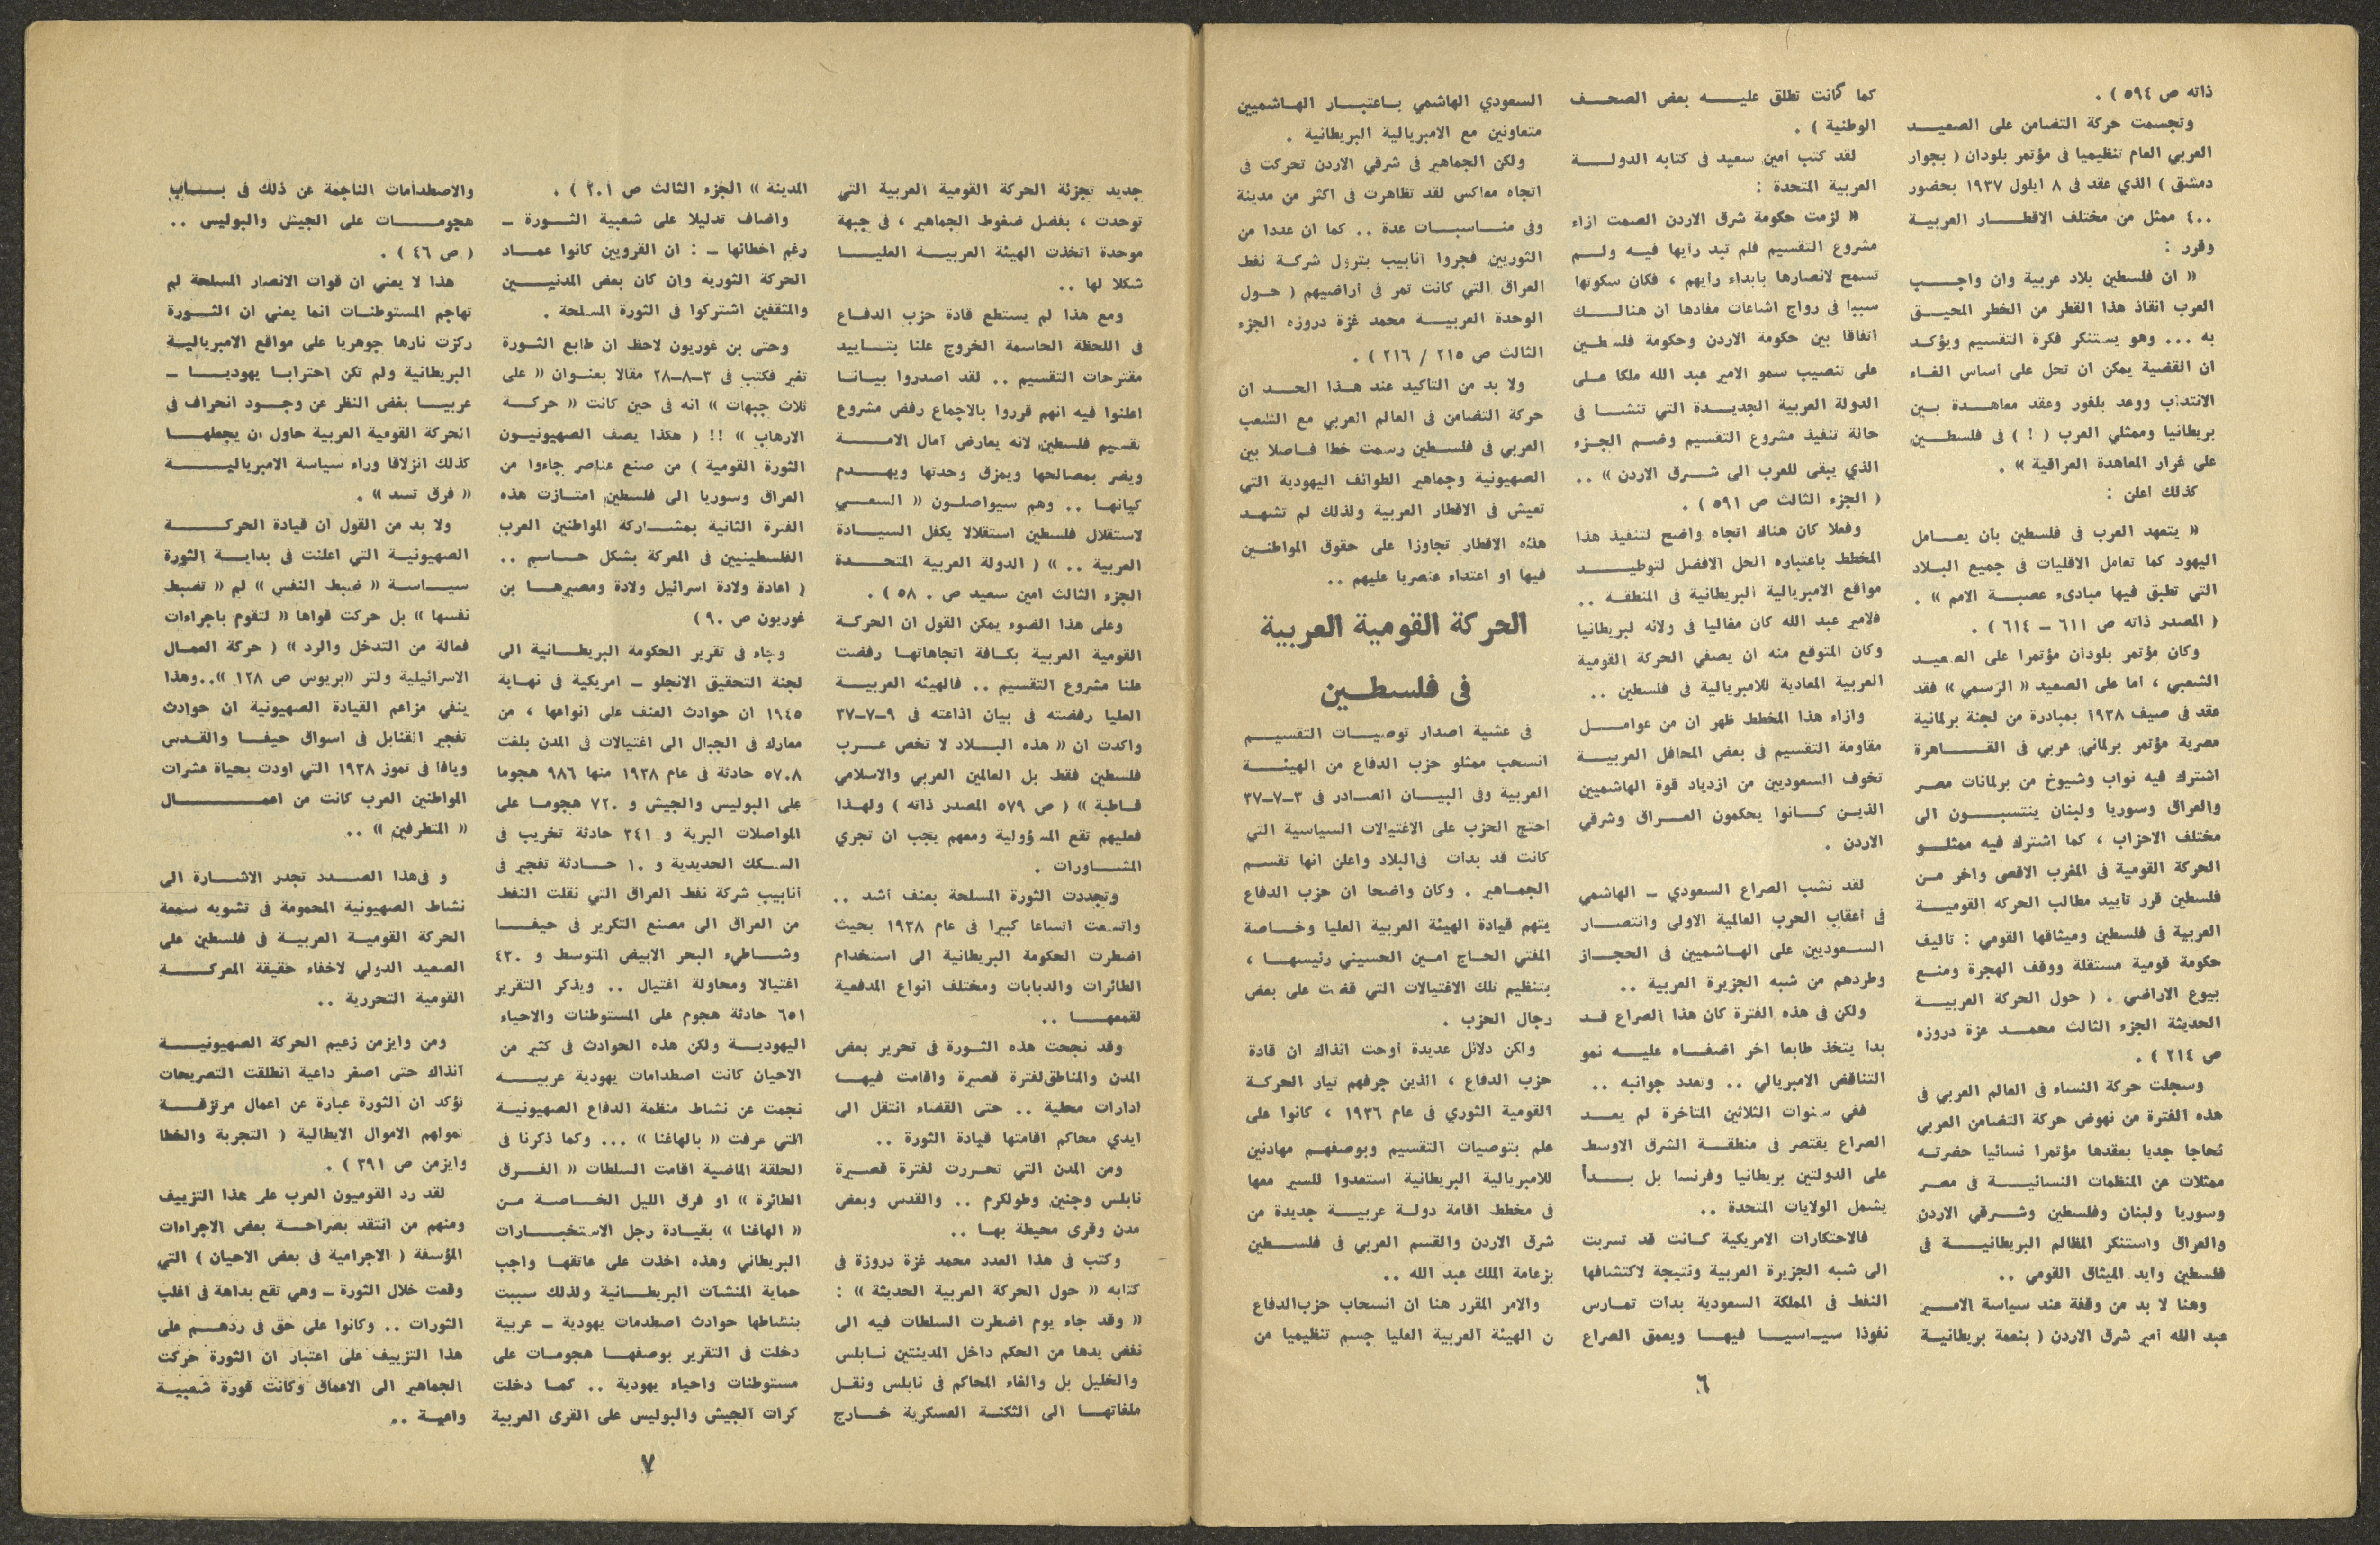 ذاته ص ٥٩٤ ) .
وتجسمت حركة التضامن على الصعيد
العربي العام تنظيميا فى مؤتمر بلودان ( بجوار
دمشق ) الذي عقد فى ٨ ايلول ١٩٣٧ بحضور
٤٠٠ ممثل من مختلف الاقطار العربية
وقرر :
« ان فلسطين بلاد عربية وان واجب
العرب انقاذ هذا القطر من الخطر المحيق
به ... وهو يستنكر فكرة التقسيم ويؤكد
ان القضية يمكن ان تحل على أساس الغاء
الانتداب ووعد بلفور وعقد معاهدة بين
بريطانيا وممثلي العرب ( ! ) فى فلسطين
على غرار المعاهدة العراقية » .
كذلك اعلن :
« يتعهد العرب فى فلسطين بان يعامل
اليهود كما تعامل الاقليات فى جميع البلاد
التي تطبق فيها مبادىء عصبة الامم » .
( المصدر ذاته ص ٦١١ ـ ٦١٤ ) .
وكان مؤتمر بلودان مؤتمرا على الصعيد
الشعبي ، اما على الصعيد « الرسمي » فقد
عقد فى صيف ١٩٣٨ بمبادرة من لجنة برلمانية
مصرية مؤتمر برلماني عربي فى القاهرة
اشترك فيه نواب وشيوخ من برلمانات مصر
والعراق وسوريا ولبنان ينتسبون الى
مختلف الاحزاب ، كما اشترك فيه ممثلو
الحركة القومية فى المغرب الاقصى واخر من
فلسطين قرر تأييد مطالب الحركه القومية
العربية فى فلسطين وميثاقها القومي : تاليف
حكومة قومية مستقلة ووقف الهجرة ومنع
بيوع الاراضي . ( حول الحركة العربية
الحديثة الجزء الثالث محمد عزة دروزه
ص ٢١٤ ) .
وسجلت حركة النساء فى العالم العربي فى
هذه الفترة من نهوض حركة التضامن العربي
نجاحا جديا بعقدها مؤتمرا نسائيا حضرته
ممثلات عن المنظمات النسائية فى مصر
وسوريا ولبنان وفلسطين وشرقي الاردن
والعراق واستنكر المظالم البريطانية فى
فلسطين وايد الميثاق القومي ..
وهنا لا بد من وقفة عند سياسة الامير
عبد الله امير شرق الاردن ( بنعمة بريطانية
كما كانت تطلق عليه بعض الصحف
الوطنية ) .
لقد كتب امين سعيد فى كتابه الدولة
العربية المتحدة :
« لزمت حكومة شرق الاردن الصمت ازاء
مشروع التقسيم فلم تبد رأيها فيه ولم
تسمح لانصارها بابداء رأيهم ، فكان سكوتها
سببا فى رواج اشاعات مفادها ان هنالك
اتفاقا بين حكومة الاردن وحكومة فلسطين
على تنصيب سمو الامير عبد الله ملكا على
الدولة العربية الجديدة التي تنشا فى
حالة تنفيذ مشروع التقسيم وضم الجزء
الذي يبقى للعرب الى شرق الاردن » ..
( الجزء الثالث ص ٥٩١ ) .
وفعلا كان هناك اتجاه واضح لتنفيذ هذا
المخطط باعتباره الحل الافضل لتوطيد
مواقع الامبريالية البريطانية فى المنطقة ..
فلامير عبد الله كان مغاليا فى ولائه لبريطانيا
وكان المتوقع منه ان يصفي الحركة القومية
العربية المعادية للامبريالية فى فلسطين ..
وازاء هذا المخطط ظهر ان من عوامل
مقاومة التقسيم فى بعض المحافل العربية
تخوف السعوديين من ازدياد قوة الهاشميين
الذين كانوا يحكمون العراق وشرقي
الاردن .
لقد نشب الصراع السعودي ـ الهاشمي
فى أعقاب الحرب العالمية الاولى وانتصار
السعوديين على الهاشميين فى الحجاز
وطردهم من شبه الجزيرة العربية ..
ولكن فى هذه الفترة كان هذا الصراع قد
بدا يتخذ طابعا اخر اضفاه عليه نمو
التناقض الامبريالي .. وتعدد جوانبه ..
ففي سنوات الثلاثين المتاخرة لم يعد
الصراع يقتصر فى منطقة الشرق الاوسط
على الدولتين بريطانيا وفرنسا بل بدأ
يشمل الولايات المتحدة ..
فالاحتكارات الامريكية كانت قد تسربت
الى شبه الجزيرة العربية ونتيجة لاكتشافها
النفط فى المملكة السعودية بدات تمارس
نفوذا سياسيا فيها ويعمق الصراع
السعودي الهاشمي باعتبار الهاشميين
متعاونين مع الامبريالية البريطانية .
ولكن الجماهير فى شرقي الاردن تحركت فى
اتجاه معاكس لقد تظاهرت فى اكثر من مدينة
وفى مناسبات عدة .. كما ان عددا من
الثوريين فجروا انابيب بترول شركة نفط
العراق التي كانت تمر فى أراضيهم ( حول
الوحدة العربية محمد عزة دروزه الجزء
الثالث ص ٢١٥ / ٢١٦ ) .
ولا بد من التاكيد عند هذا الحد ان
حركة التضامن فى العالم العربي مع الشعب
العربي فى فلسطين رسمت خطا فاصلا بين
الصهيونية وجماهير الطوائف اليهودية التي
تعيش فى الاقطار العربية ولذلك لم تشهد
هذه الاقطار تجاوزا على حقوق المواطنين
فيها او اعتداء عنصريا عليهم ..
الحركة القومية العربية
فى فلسطين
فى عشية اصدار توصيات التقسيم
انسحب ممثلو حزب الدفاع من الهيئة
العربية وفى البيان الصادر فى ٣-٧-٣٧
احتج الحزب على الاغتيالات السياسية التي
كانت قد بدأت فى البلاد واعلن انها تقسم
الجماهير . وكان واضحا ان حزب الدفاع
يتهم قيادة الهيئة العربية العليا وخاصة
المفتي الحاج امين الحسيني رئيسها ،
بتنظيم تلك الاغتيالات التي قضت على بعض
رجال الحزب .
ولكن دلائل عديدة أوحت انذاك ان قادة
حزب الدفاع ، الذين جرفهم تيار الحركة
القومية الثوري فى عام ١٩٣٦ ، كانوا على
علم بتوصيات التقسيم وبوصفهم مهادنين
للامبريالية البريطانية استعدوا للسير معها
فى مخطط اقامة دولة عربية جديدة من
شرق الاردن والقسم العربي فى فلسطين
بزعامة الملك عبد الله ..
والامر المقرر هنا ان انسحاب حزب الدفاع
ن الهيئة العربية العليا جسم تنظيميا من
٦
جديد تجزئة الحركة القومية العربية التي
توحدت ، بفضل ضغوط الجماهير ، فى جبهة
موحدة اتخذت الهيئة العربية العليا
شكلا لها ..
ومع هذا لم يستطع قادة حزب الدفاع
فى اللحظة الحاسمة الخروج علنا بتاييد
مقترحات التقسيم .. لقد اصدروا بيانا
اعلنوا فيه انهم قرروا بالاجماع رفض مشروع
تقسيم فلسطين لانه يعارض آمال الامة
ويضر بمصالحها ويمزق وحدتها ويهدم
كيانها .. وهم سيواصلون « السعي
لاستقلال فلسطين استقلالا يكفل السيادة
العربية .. » ( الدولة العربية المتحدة
الجزء الثالث امين سعيد ص ٥٨٠ ) .
وعلى هذا الضوء يمكن القول ان الحركة
القومية العربية بكافة اتجاهاتها رفضت
علنا مشروع التقسيم .. فالهيئه العربية
العليا رفضته فى بيان اذاعته فى ٩-٧-٣٧
واكدت ان « هذه البلاد لا تخص عرب
فلسطين فقط بل العالمين العربي والاسلامي
قاطبة » ( ص ٥٧٩ المصدر ذاته ) ولهذا
فعليهم تقع المسؤولية ومعهم يجب ان تجري
المشاورات .
وتجددت الثورة المسلحة بعنف أشد ..
واتسعت اتساعا كبيرا فى عام ١٩٣٨ بحيث
اضطرت الحكومة البريطانية الى استخدام
الطائرات والدبابات ومختلف انواع المدفعية
لقمعها ..
وقد نجحت هذه الثورة فى تحرير بعض
المدن والمناطق لفترة قصيرة واقامت فيها
ادارات محلية .. حتى القضاء انتقل الى
ايدي محاكم اقامتها قيادة الثورة ..
ومن المدن التي تحررت لفترة قصيرة
نابلس وجنين وطولكرم .. والقدس وبعض
مدن وقرى محيطة بها ..
وكتب فى هذا العدد محمد عزة دروزة فى
كتابه « حول الحركة العربية الحديثة » :
« وقد جاء يوم اضطرت السلطات فيه الى
نفض يدها من الحكم داخل المدينتين نابلس
والخليل بل والغاء المحاكم فى نابلس ونقل
ملفاتها الى الثكنة العسكرية خارج
المدينة » الجزء الثالث ص ٢٠١ ) .
واضاف تدليلا على شعبية الثورة ـ
رغم اخطائها ـ : ان القرويين كانوا عماد
الحركة الثورية وان كان بعض المدنيين
والمثقفين اشتركوا فى الثورة المسلحة .
وحتى بن غوريون لاحظ ان طابع الثورة
تغير فكتب فى ٣-٨-٢٨ مقالا بعنوان « على
ثلاث جبهات » انه فى حين كانت « حركة
الارهاب » !! ( هكذا يصف الصهيونيون
الثورة القومية ) من صنع عناصر جاءوا من
العراق وسوريا الى فلسطين امتازت هذه
الفترة الثانية بمشاركة المواطنين العرب
الفلسطينيين فى المعركة بشكل حاسم ..
( اعادة ولادة اسرائيل ولادة ومصيرها بن
غوريون ص ٩٠ )
وجاء فى تقرير الحكومة البريطانية الى
لجنة التحقيق الانجلو ـ امريكية فى نهاية
١٩٤٥ ان حوادث العنف على انواعها ، من
معارك فى الجبال الى اغتيالات فى المدن بلغت
٥٧٠٨ حادثة فى عام ١٩٣٨ منها ٩٨٦ هجوما
على البوليس والجيش و ٧٢٠ هجوما على
المواصلات البرية و ٣٤١ حادثة تخريب فى
السكك الحديدية و ١٠ حادثة تفجير فى
أنابيب شركة نفط العراق التي نقلت النفط
من العراق الى مصنع التكرير فى حيفا
وشاطىء البحر الابيض المتوسط و ٤٣٠
اغتيالا ومحاولة اغتيال .. ويذكر التقرير
٦٥١ حادثة هجوم على المستوطنات والاحياء
اليهودية ولكن هذه الحوادث فى كثير من
الاحيان كانت اصطدامات يهودية عربيه
نجمت عن نشاط منظمة الدفاع الصهيونية
التي عرفت « بالهاغنا » ... وكما ذكرنا فى
الحلقة الماضية اقامت السلطات « الفرق
الطائرة » او فرق الليل الخاصة من
« الهاغنا » بقيادة رجل الاستخبارات
البريطاني وهذه اخذت على عاتقها واجب
حماية المنشآت البريطانية ولذلك سببت
بنشاطها حوادث اصطدمات يهودية ـ عربية
دخلت فى التقرير بوصفها هجومات على
مستوطنات واحياء يهودية .. كما دخلت
كرات الجيش والبوليس على القرى العربية
والاصطدامات الناجمة عن ذلك فى باب
هجومات على الجيش والبوليس ..
( ص ٤٦ ) .
هذا لا يعني ان قوات الانصار المسلحة لم
تهاجم المستوطنات انما يعني ان الثورة
ركزت نارها جوهريا على مواقع الامبريالية
البريطانية ولم تكن احترابا يهوديا ـ
عربيا بغض النظر عن وجود انحراف فى
الحركة القومية العربية حاول ان يجعلها
كذلك انزلاقا وراء سياسة الامبريالية
« فرق تسد » .
ولا بد من القول ان قيادة الحركة
الصهيونية التي اعلنت فى بداية الثورة
سياسة « ضبط النفس » لم « تضبط
نفسها » بل حركت قواها « لتقوم باجراءات
فعالة من التدخل والرد » ( حركة العمال
الاسرائيلية ولتر «بريوس ص ١٢٨ »..وهذا
ينفي مزاعم القيادة الصهيونية ان حوادث
تفجير القنابل فى اسواق حيفا والقدس
ويافا فى تموز ١٩٣٨ التي اودت بحياة عشرات
المواطنين العرب كانت من اعمال
« المتطرفين » ..
و فى هذا الصدد تجدر الاشارة الى
نشاط الصهيونية المحمومة فى تشويه سمعة
الحركة القومية العربية فى فلسطين على
الصعيد الدولي لاخفاء حقيقة المعركة
القومية التحررية ..
ومن وايزمن زعيم الحركة الصهيونية
آنذاك حتى اصغر داعية انطلقت التصريحات
تؤكد ان الثورة عبارة عن اعمال مرتزقة
تمولهم الاموال الايطالية ( التجربة والخطا
وايزمن ص ٣٩١ ) .
لقد رد القوميون العرب على هذا التزييف
ومنهم من انتقد بصراحة بعض الاجراءات
المؤسفة ( الاجرامية فى بعض الاحيان ) التي
وقعت خلال الثورة ـ وهي تقع بداهة فى اغلب
الثورات .. وكانوا على حق فى ردهم على
هذا التزييف على اعتبار ان الثورة حركت
الجماهير الى الاعماق وكانت فورة شعبية
واعية ..
٧